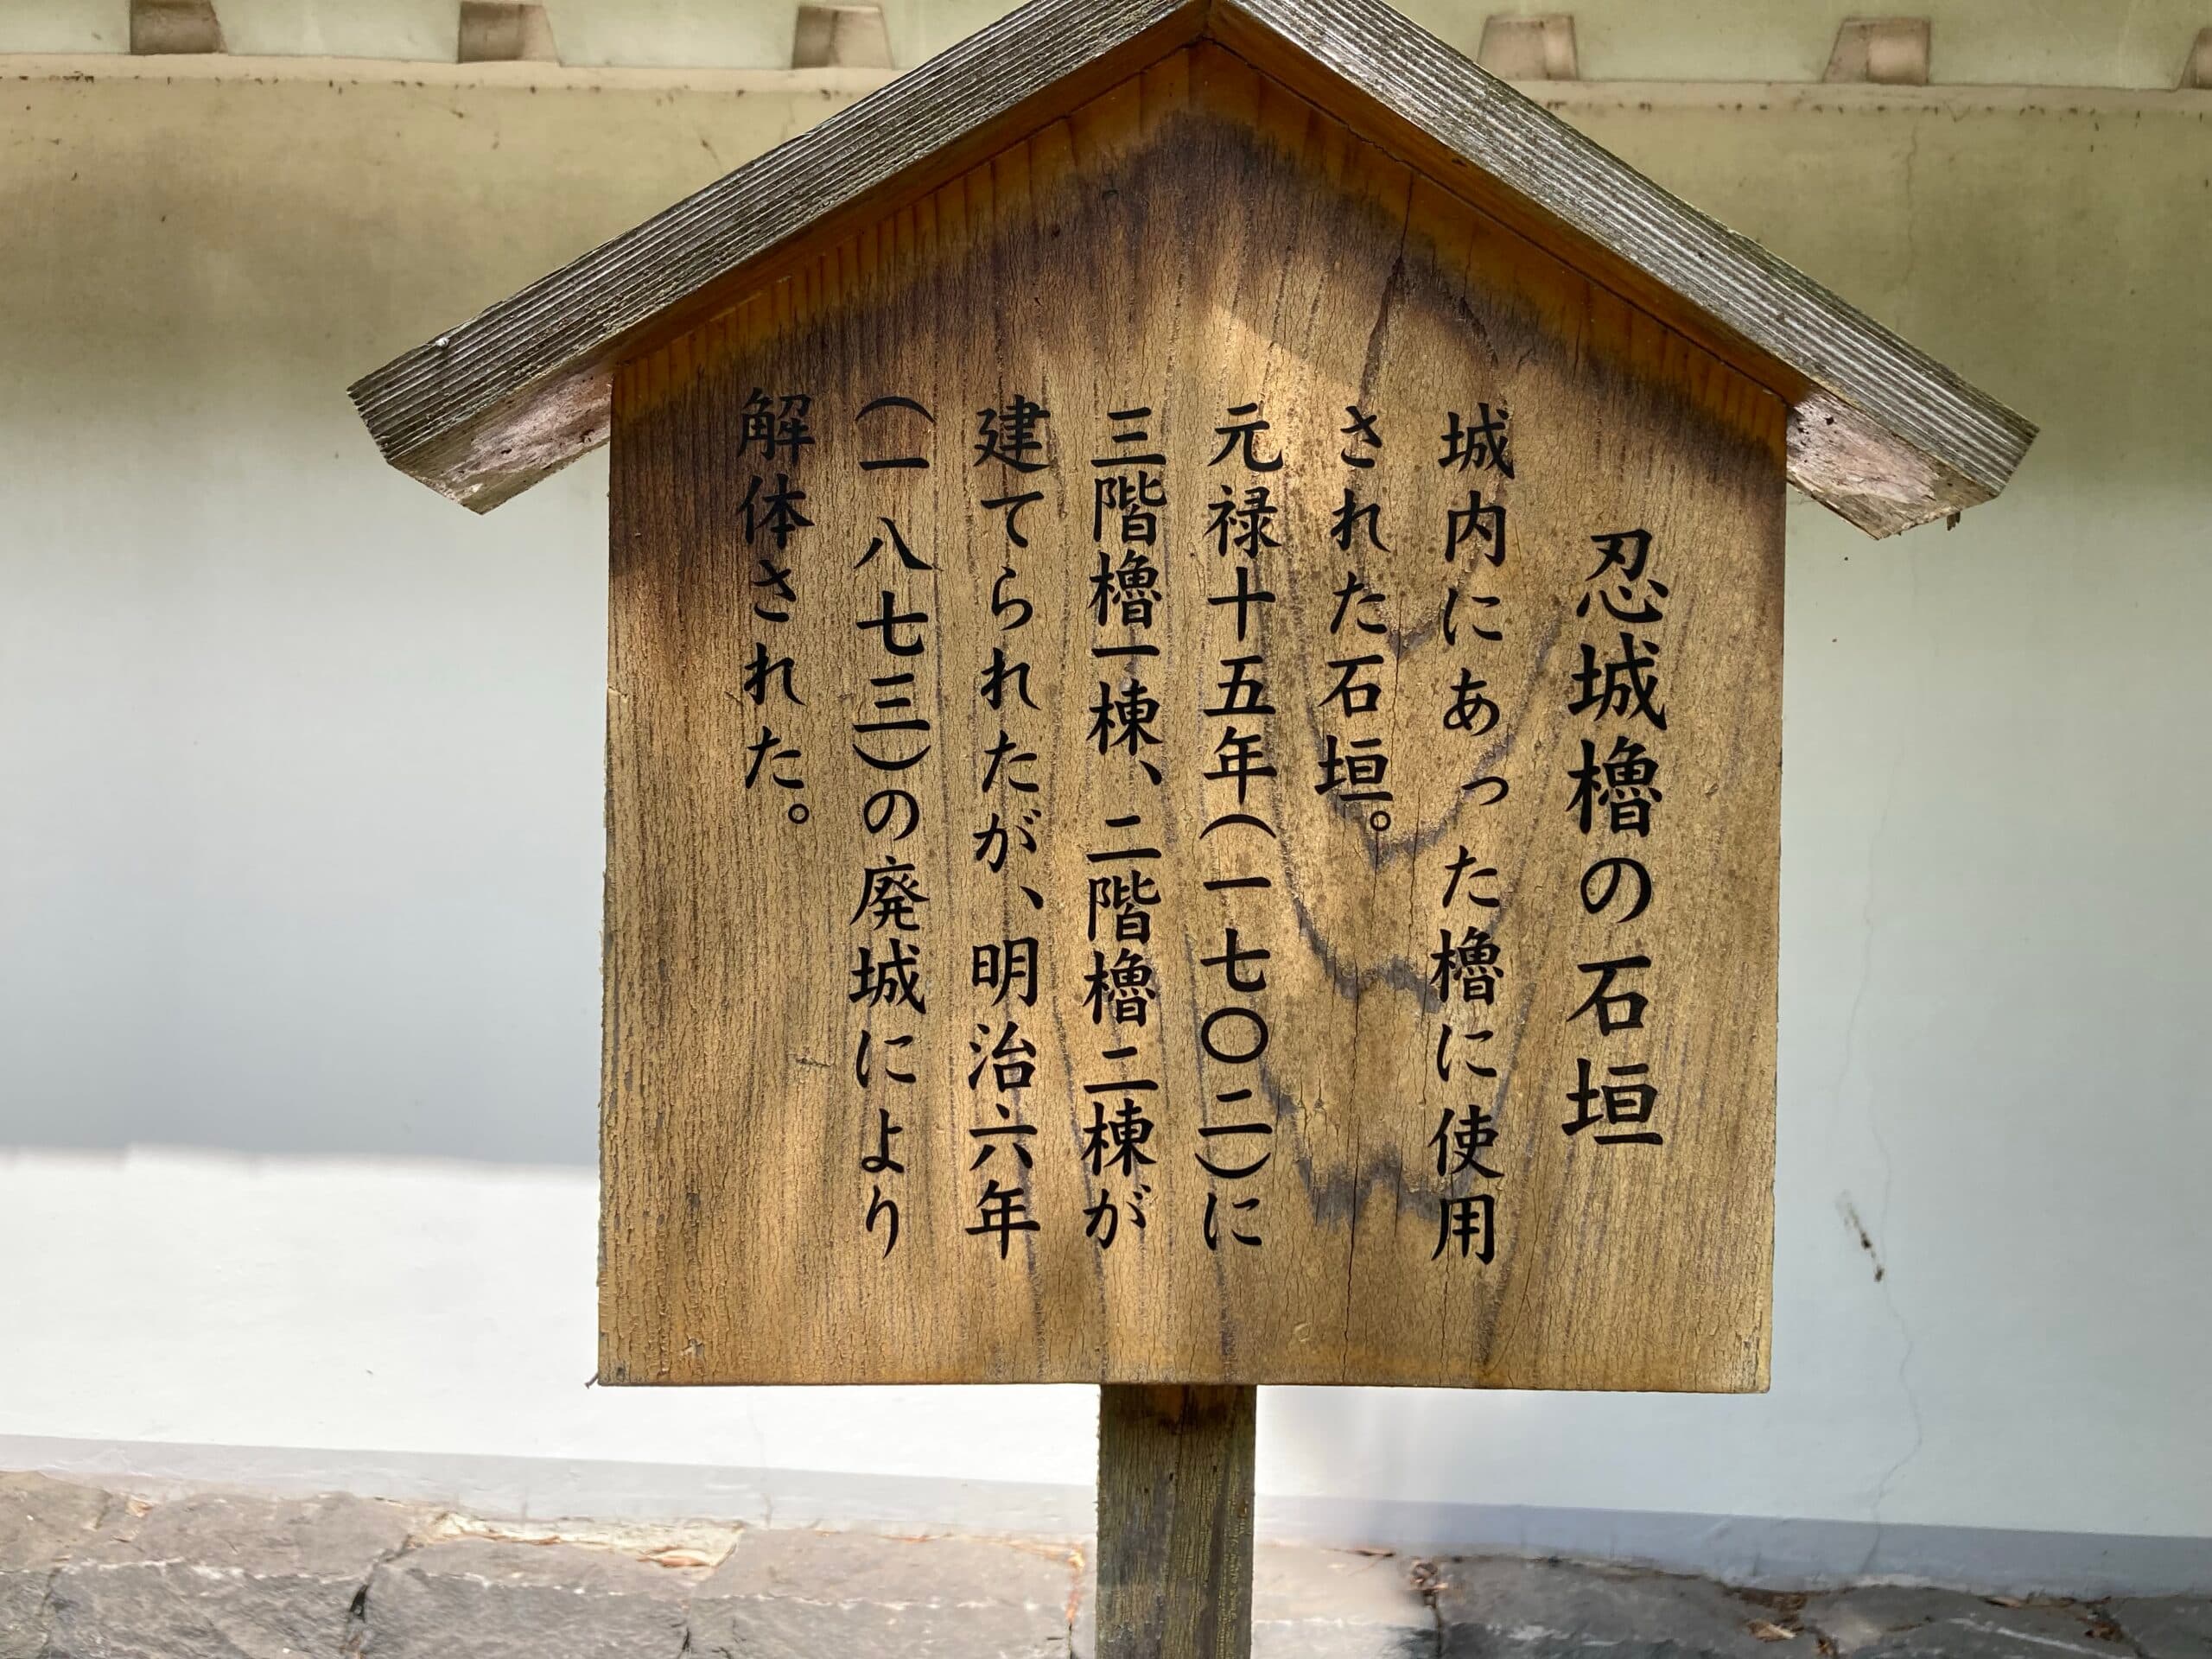 忍城櫓の石垣
城内にあった櫓に使用
された石垣。
元禄十五年(一七〇二)に
三階櫓一棟、二階櫓二棟が
建てられたが、明治六年
(一八七三)の廃城により
解体された。